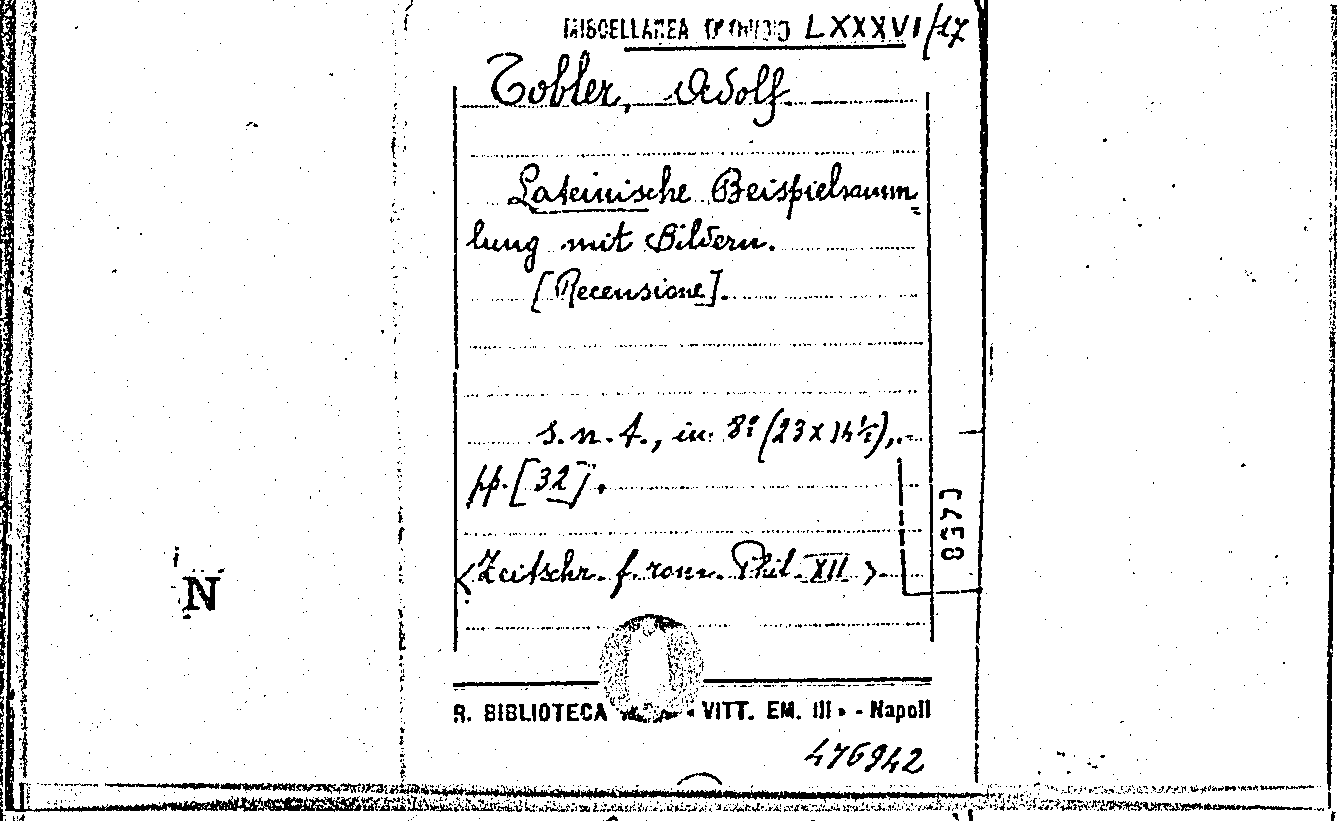 MISCELLANEA LXXXVI/17
Tobler, Adolf.
Lateinische Beispielsamm=
lung mit Bildern.
[Recensione].
s. n. t., in 8º (23 x 14½),
pp. [32].
<Zeitschr. f. rom. Phil. XII>
8370
N
R. BIBLIOTECA « VITT. EM. III » - Napoli
476942